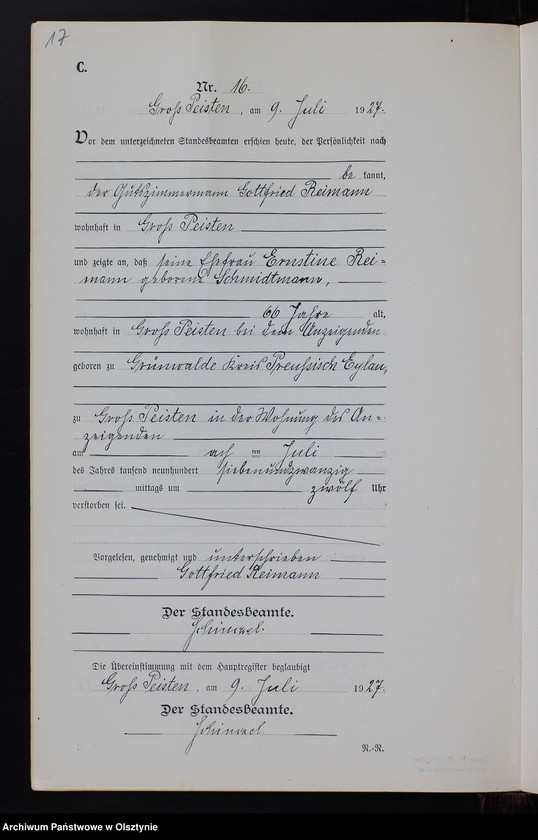 17
C.
Nr. 16.
Groß Peisten, am 9. Juli 1927.
Vor dem unterzeichneten Standesbeamten erschien heute, der Persönlichkeit nach
be kannt,
der Gutszimmermann Gottfried Reimann
wohnhaft in Groß Peisten
und zeigte an, daß seine Ehefrau Ernstine Rei=
mann geborene Schmidtmann,
66 Jahre alt,
wohnhaft in Groß Peisten bei dem Anzeigenden
geboren zu Grünwalde Kreis Preußisch Eylau,
zu Groß Peisten in der Wohnung des An=
zeigenden
am acht ten Juli
des Jahres tausend neunhundert siebenundzwanzig
mittags um zwölf Uhr
verstorben sei.
Vorgelesen, genehmigt und unterschrieben
Gottfried Reimann
Der Standesbeamte.
Die Übereinstimmung mit dem Hauptregister beglaubigt
Groß Peisten, am 9. Juli 1927.
Der Standesbeamte.
R.-R.
Archiwum Państwowe w Olsztynie